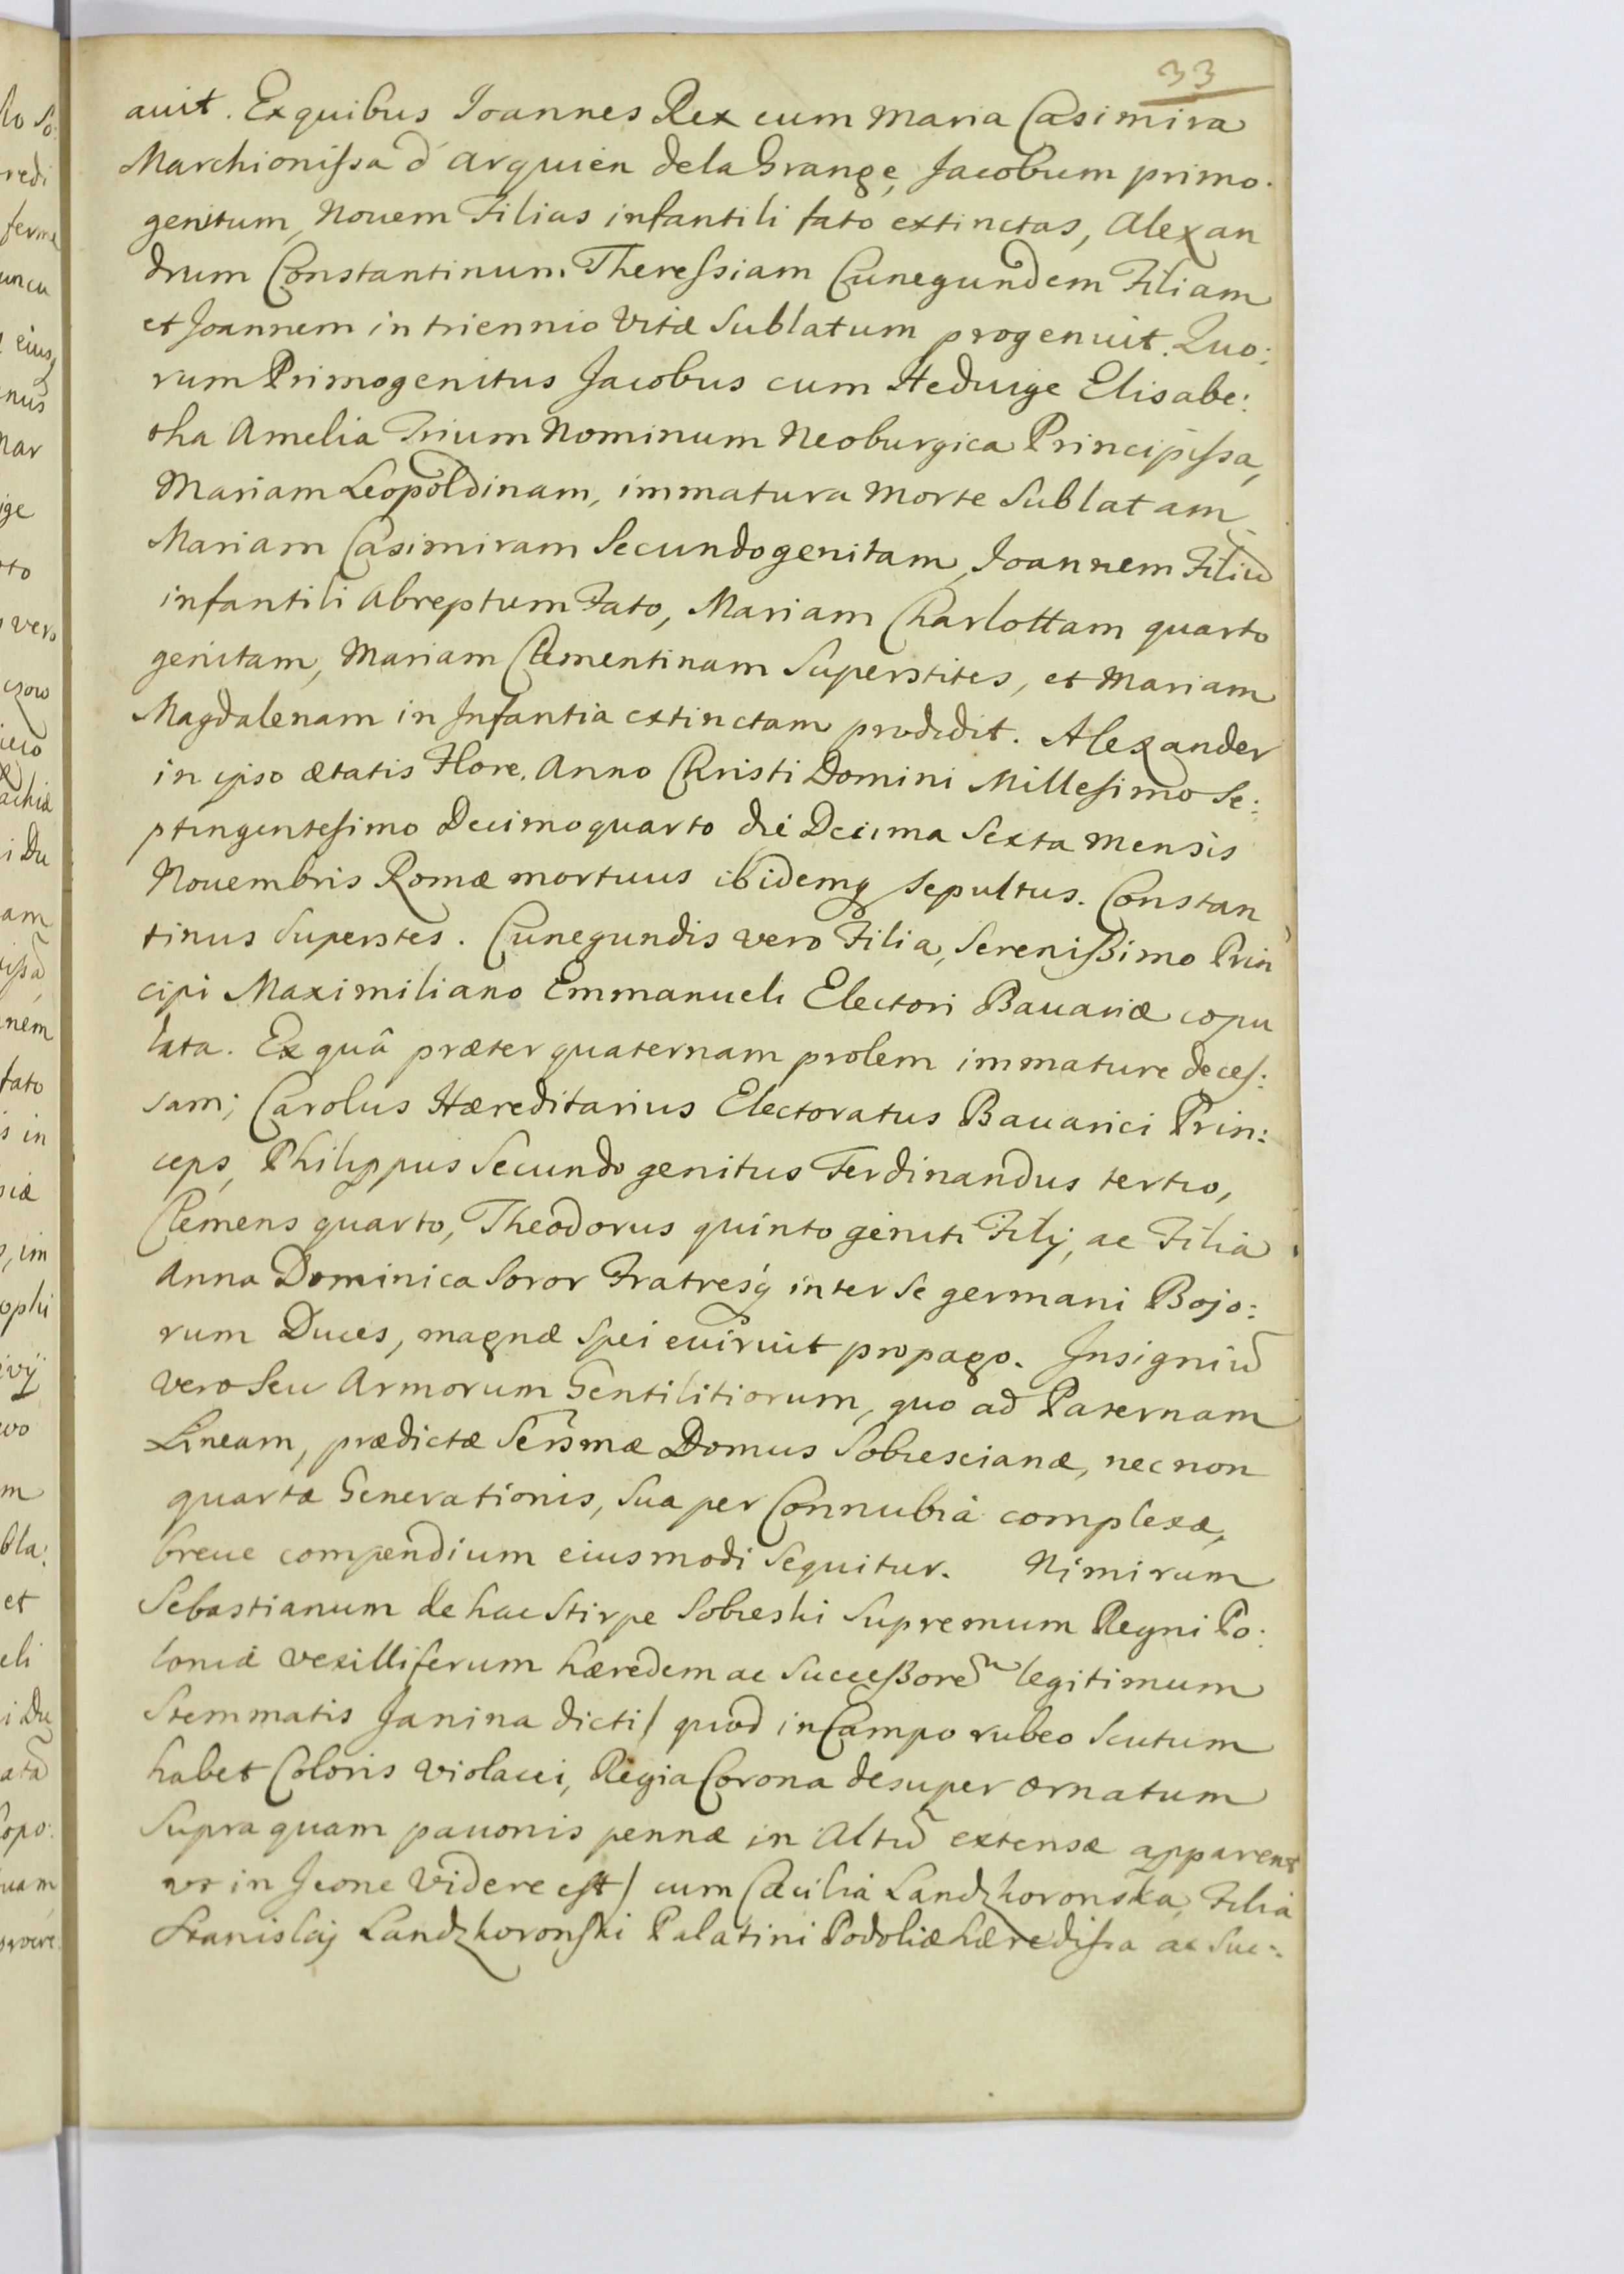 33
auit. Ex quibus Joannes Rex cum Maria Casimira
Marchionissa d' Arquien de la Grange, Jacobum primo:
genitum, Nouem Filias infantili fato extinctas, Alexan
drum Constantinum Theressiam Cunegundem Filiam
et Joannem in triennio Vitæ Sublatum progenuit. Quo:
rum Primogenitus Jacobus cum Heduige Elisabe:
tha Amelia Trium Nominum Neoburgica Principissa,
Mariam Leopoldinam, immatura Morte Sublatam
Mariam Casimiram Secundogenitam, Joannem Filiū
infantili Abreptum Fato, Mariam Charlottam quarto
genitam, Mariam Clementinam Superstites, et Mariam
Magdalenam in Infantia extinctam prodidit. Alexander
in ipso ætatis Flore, Anno Christi Domini Millesimo Se:
ptingentesimo Decimoquarto die Decima Sexta Mensis
Nouembris Romæ mortuus ibidemq₃ sepultus. Constan
tinus Superstes. Cunegundis vero Filia, Serenißimo Prin
cipi Maximiliano Emmanueli Electori Bauariæ copu
lata. Ex quâ præter quaternam prolem immature deces:
sam; Carolus Hæreditarius Electoratus Bauarici Prin:
ceps, Philippus Secundo genitus Ferdinandus tertio,
Clemens quarto, Theodorus quinto geniti Filij, ac Filia
Anna Dominica Soror Fratresq₃ inter Se germani Bojo:
rum Duces, magnæ Spei euiruit propago. Insigniū
vero Seu Armorum Gentilitiorum, quo ad Paternam
Lineam, prædictæ Serꝰmæ Domus Sobiescianæ, nec non
quartæ Generationis, Sua per Connubia complexæ,
breue compendium eiusmodi Sequitur. Nimirum
Sebastianum de hac Stirpe Sobieski Supremum Regni Po:
loniæ vexilliferum hæredem ac Succeßorē legitimum
Stemmatis Janina dicti / quod in Campo rubeo Scutum
habet Coloris Violacei, Regia Corona desuper ornatum
Supra quam pauonis pennæ in Altū extensæ apparent
vt in Icone Videre est / cum Cæcilia Landzkoronska, Filia
Stanislaj Landzkoronski Palatini Podoliæ hæredissa ac Suc: